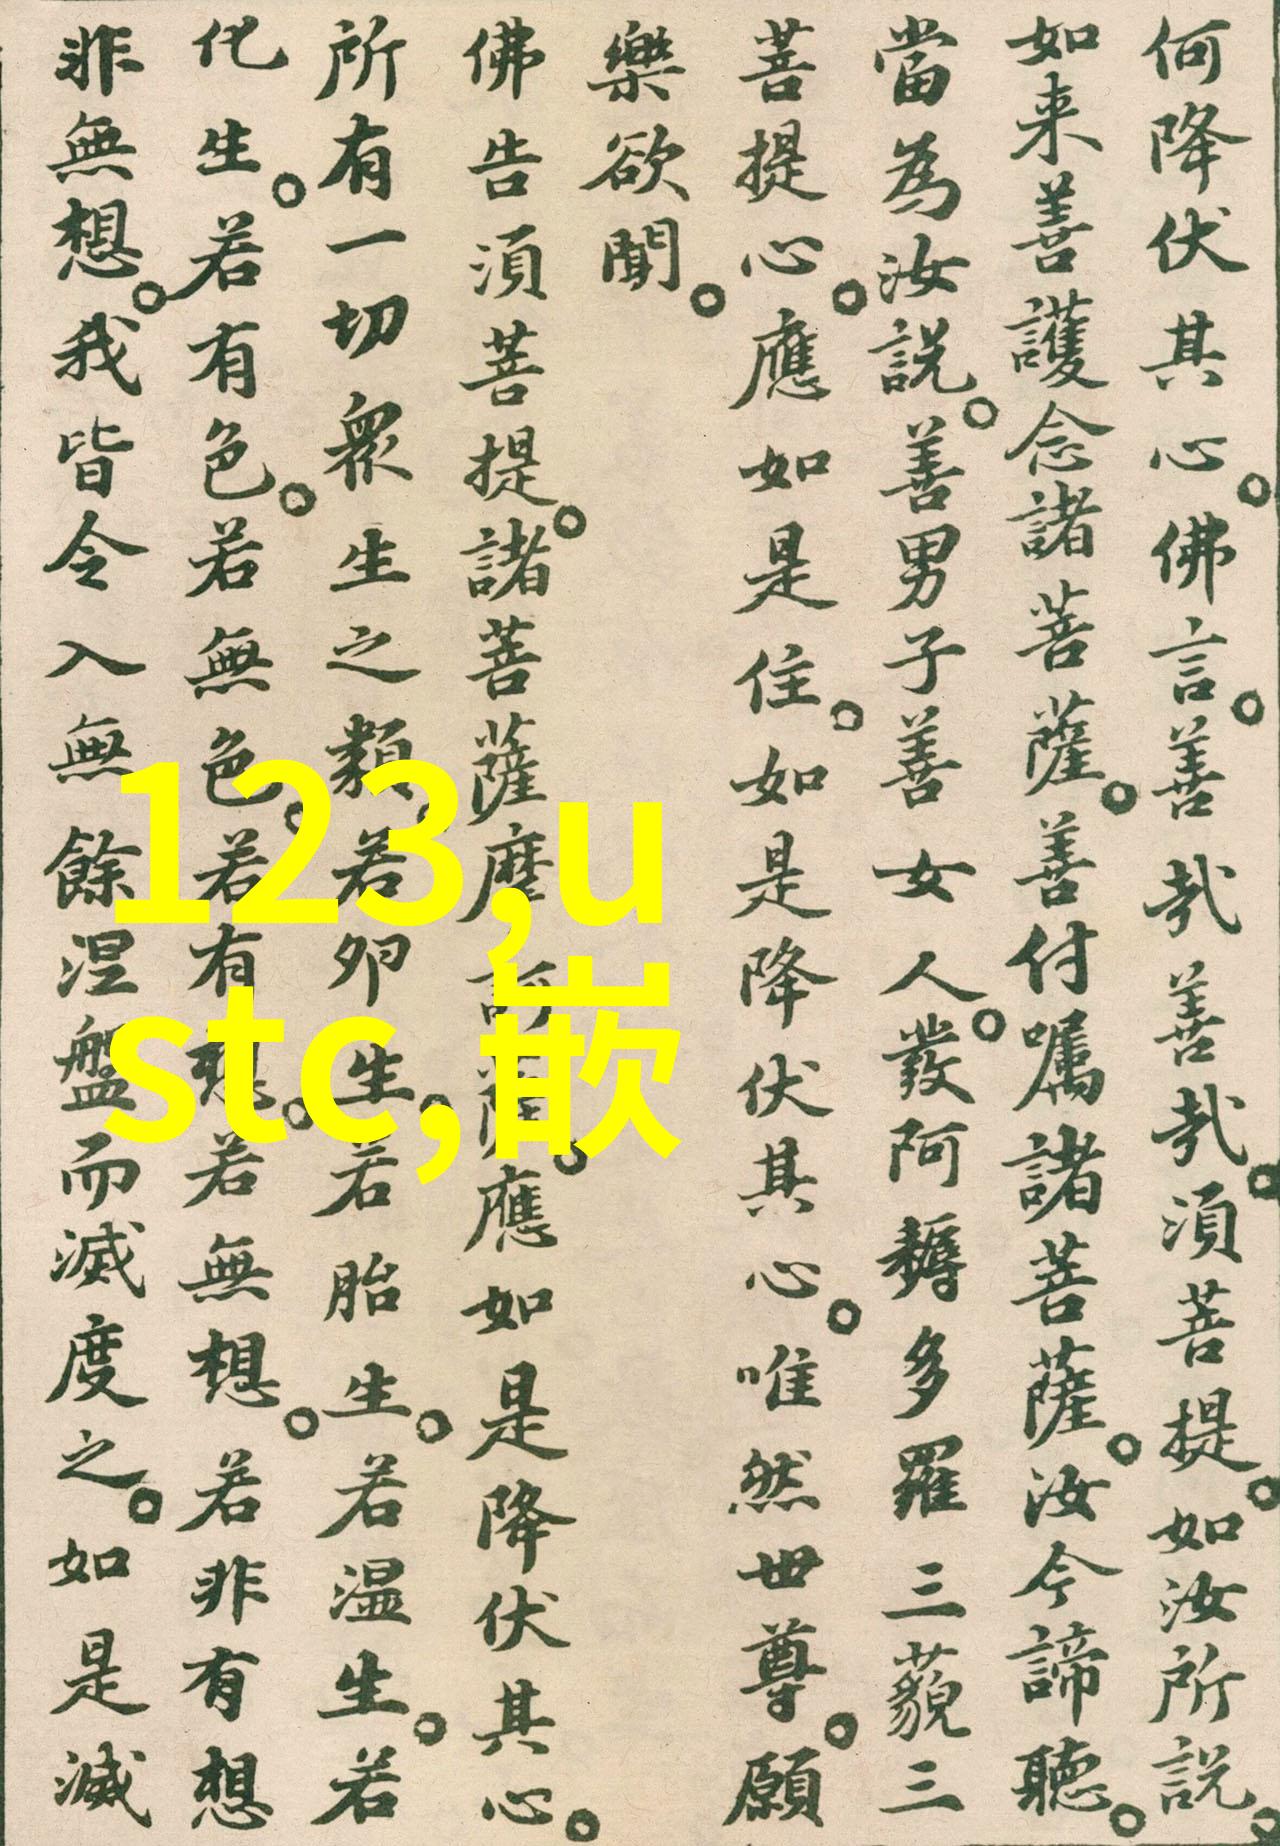 何降伏其心。佛言。善哉善哉。須菩提。如汝所説。
如来善護念諸菩薩。善付嘱諸菩薩。汝今諦聽。
當為汝説。善男子善女人。發阿耨多羅三藐三
菩提心。應如是住。如是降伏其心。唯然世尊。願
樂欲聞。
佛告須菩提。諸菩薩摩訶薩。應如是降伏其心。
所有一切衆生之類。若卵生。若胎生。若温生。若
化生。若有色。若無色。若有想。若無想。若非有想
非無想。我皆令入無餘涅盤而滅度之。如是滅
123,u
stc,嵌